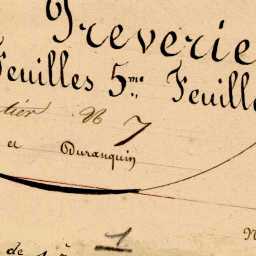 Treverie
Feuilles 5me Feuille
tier No 7
et Duranquin
1
de